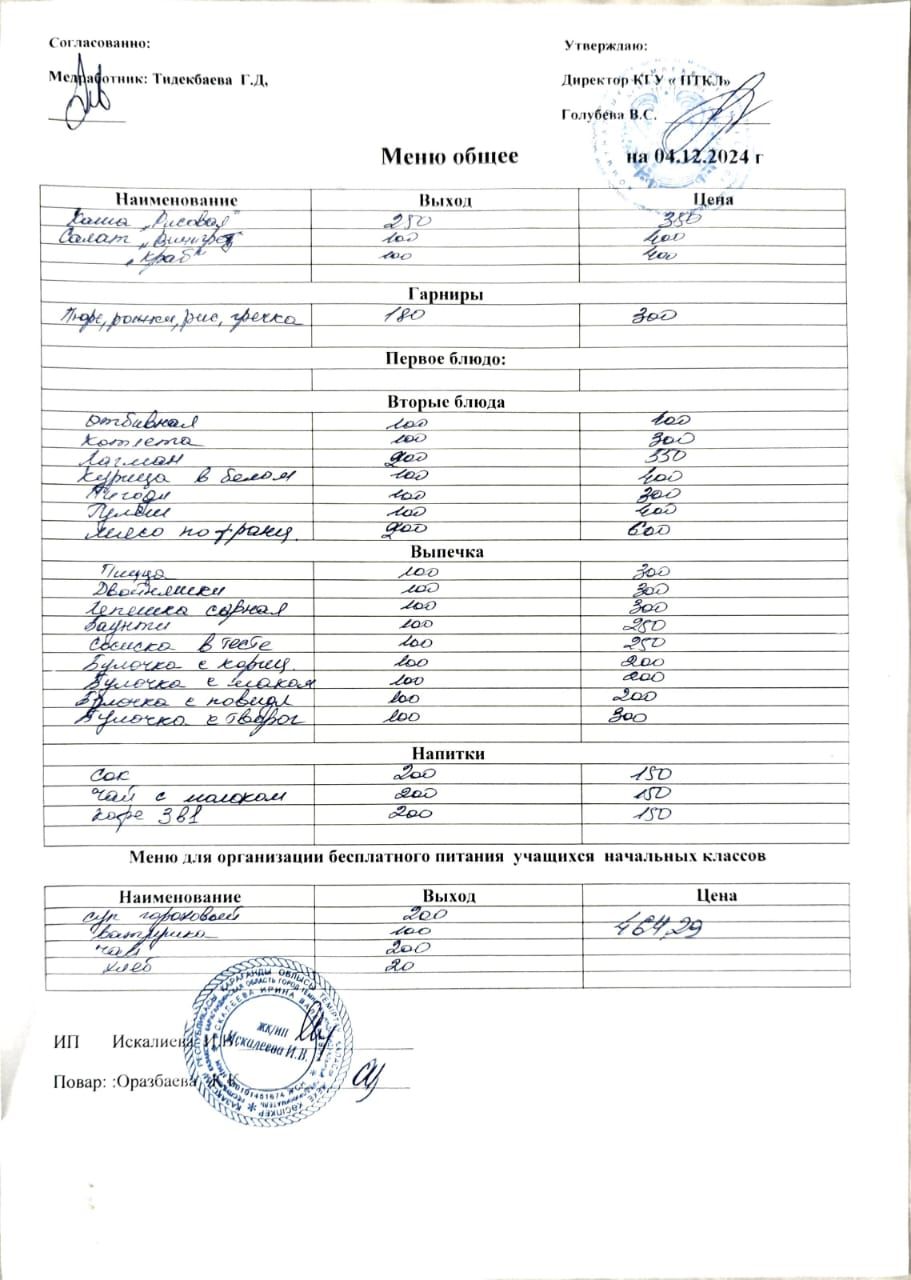 Согласованно: Утверждаю:
Медработник: Тидекбаева Г.Д, Директор КГУ « ПТКЛ»
Голубева В.С.
Меню общее на 04.12.2024 г
Наименование Выход Цена
Каша „Рисовая" 250 350
Салат „Винигрет 100 400
„Краб" 100 400
Гарниры
Пюре, рожки, рис, гречка 180 300
Первое блюдо:
Вторые блюда
Отбивная 100 400
Котлета 100 300
Лагман 200 550
Курица в белом 100 400
Пигоди 100 300
100 400
Мясо по франц. 200 600
Выпечка
Пицца 100 300
Двойняшки 100 300
Лепешка сырная 100 300
Баунти 100 250
Сосиска в тесте 100 250
Булочка с кориц. 100 200
Булочка с маком 100 200
Булочка с повидл 100 200
Булочка с творог 100 300
Напитки
Сок 200 150
Чай с молоком 200 150
Кофе 3в1 200 150
Меню для организации бесплатного питания учащихся начальных классов
Наименование Выход Цена
Суп гороховый 200
Ватрушка 100 464,29
чай 200
хлеб 20
ИП Искалиева И.В
ЖК/ИП
Искалеева И.В.
Повар: :Оразбаева К.К